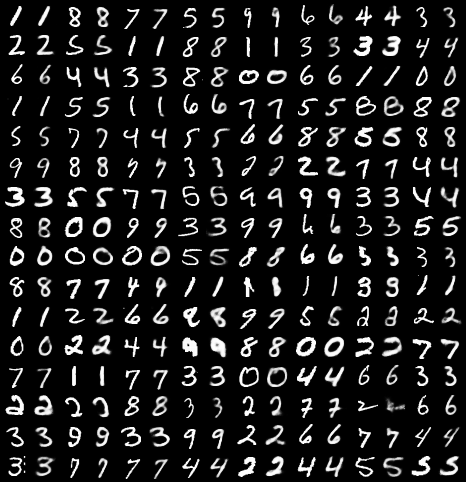 1 1 8 8 7 7 5 5 9 9 6 6 4 4 3 3
2 2 5 5 1 1 8 8 1 1 3 3 3 3 4 4
6 6 4 4 3 3 8 8 0 0 6 6 1 1 0 0
1 1 5 5 1 1 6 6 7 7 5 5 8 8 8 8
5 5 7 7 4 4 5 5 6 6 8 8 5 5 8 8
9 9 8 8 7 7 3 3 2 2 2 2 7 7 4 4
3 3 5 5 7 7 5 5 9 9 9 9 3 3 4 4
8 8 0 0 9 9 3 3 9 9 6 6 3 3 5 5
0 0 0 0 0 0 5 5 8 8 6 6 3 3 3 3
8 8 7 7 4 9 1 1 1 8 1 1 3 3 1 1
1 1 2 2 6 6 8 8 9 9 5 5 2 2 2 2
0 0 2 2 4 4 9 9 8 8 0 0 2 2 7 7
7 7 1 1 7 7 3 3 0 0 4 4 6 6 3 3
2 2 2 2 8 8 3 3 2 2 7 7 2 6 6
3 3 9 9 3 3 9 9 2 2 6 6 7 7 4 4
3 3 7 7 7 7 4 4 2 2 4 4 5 5 5 5